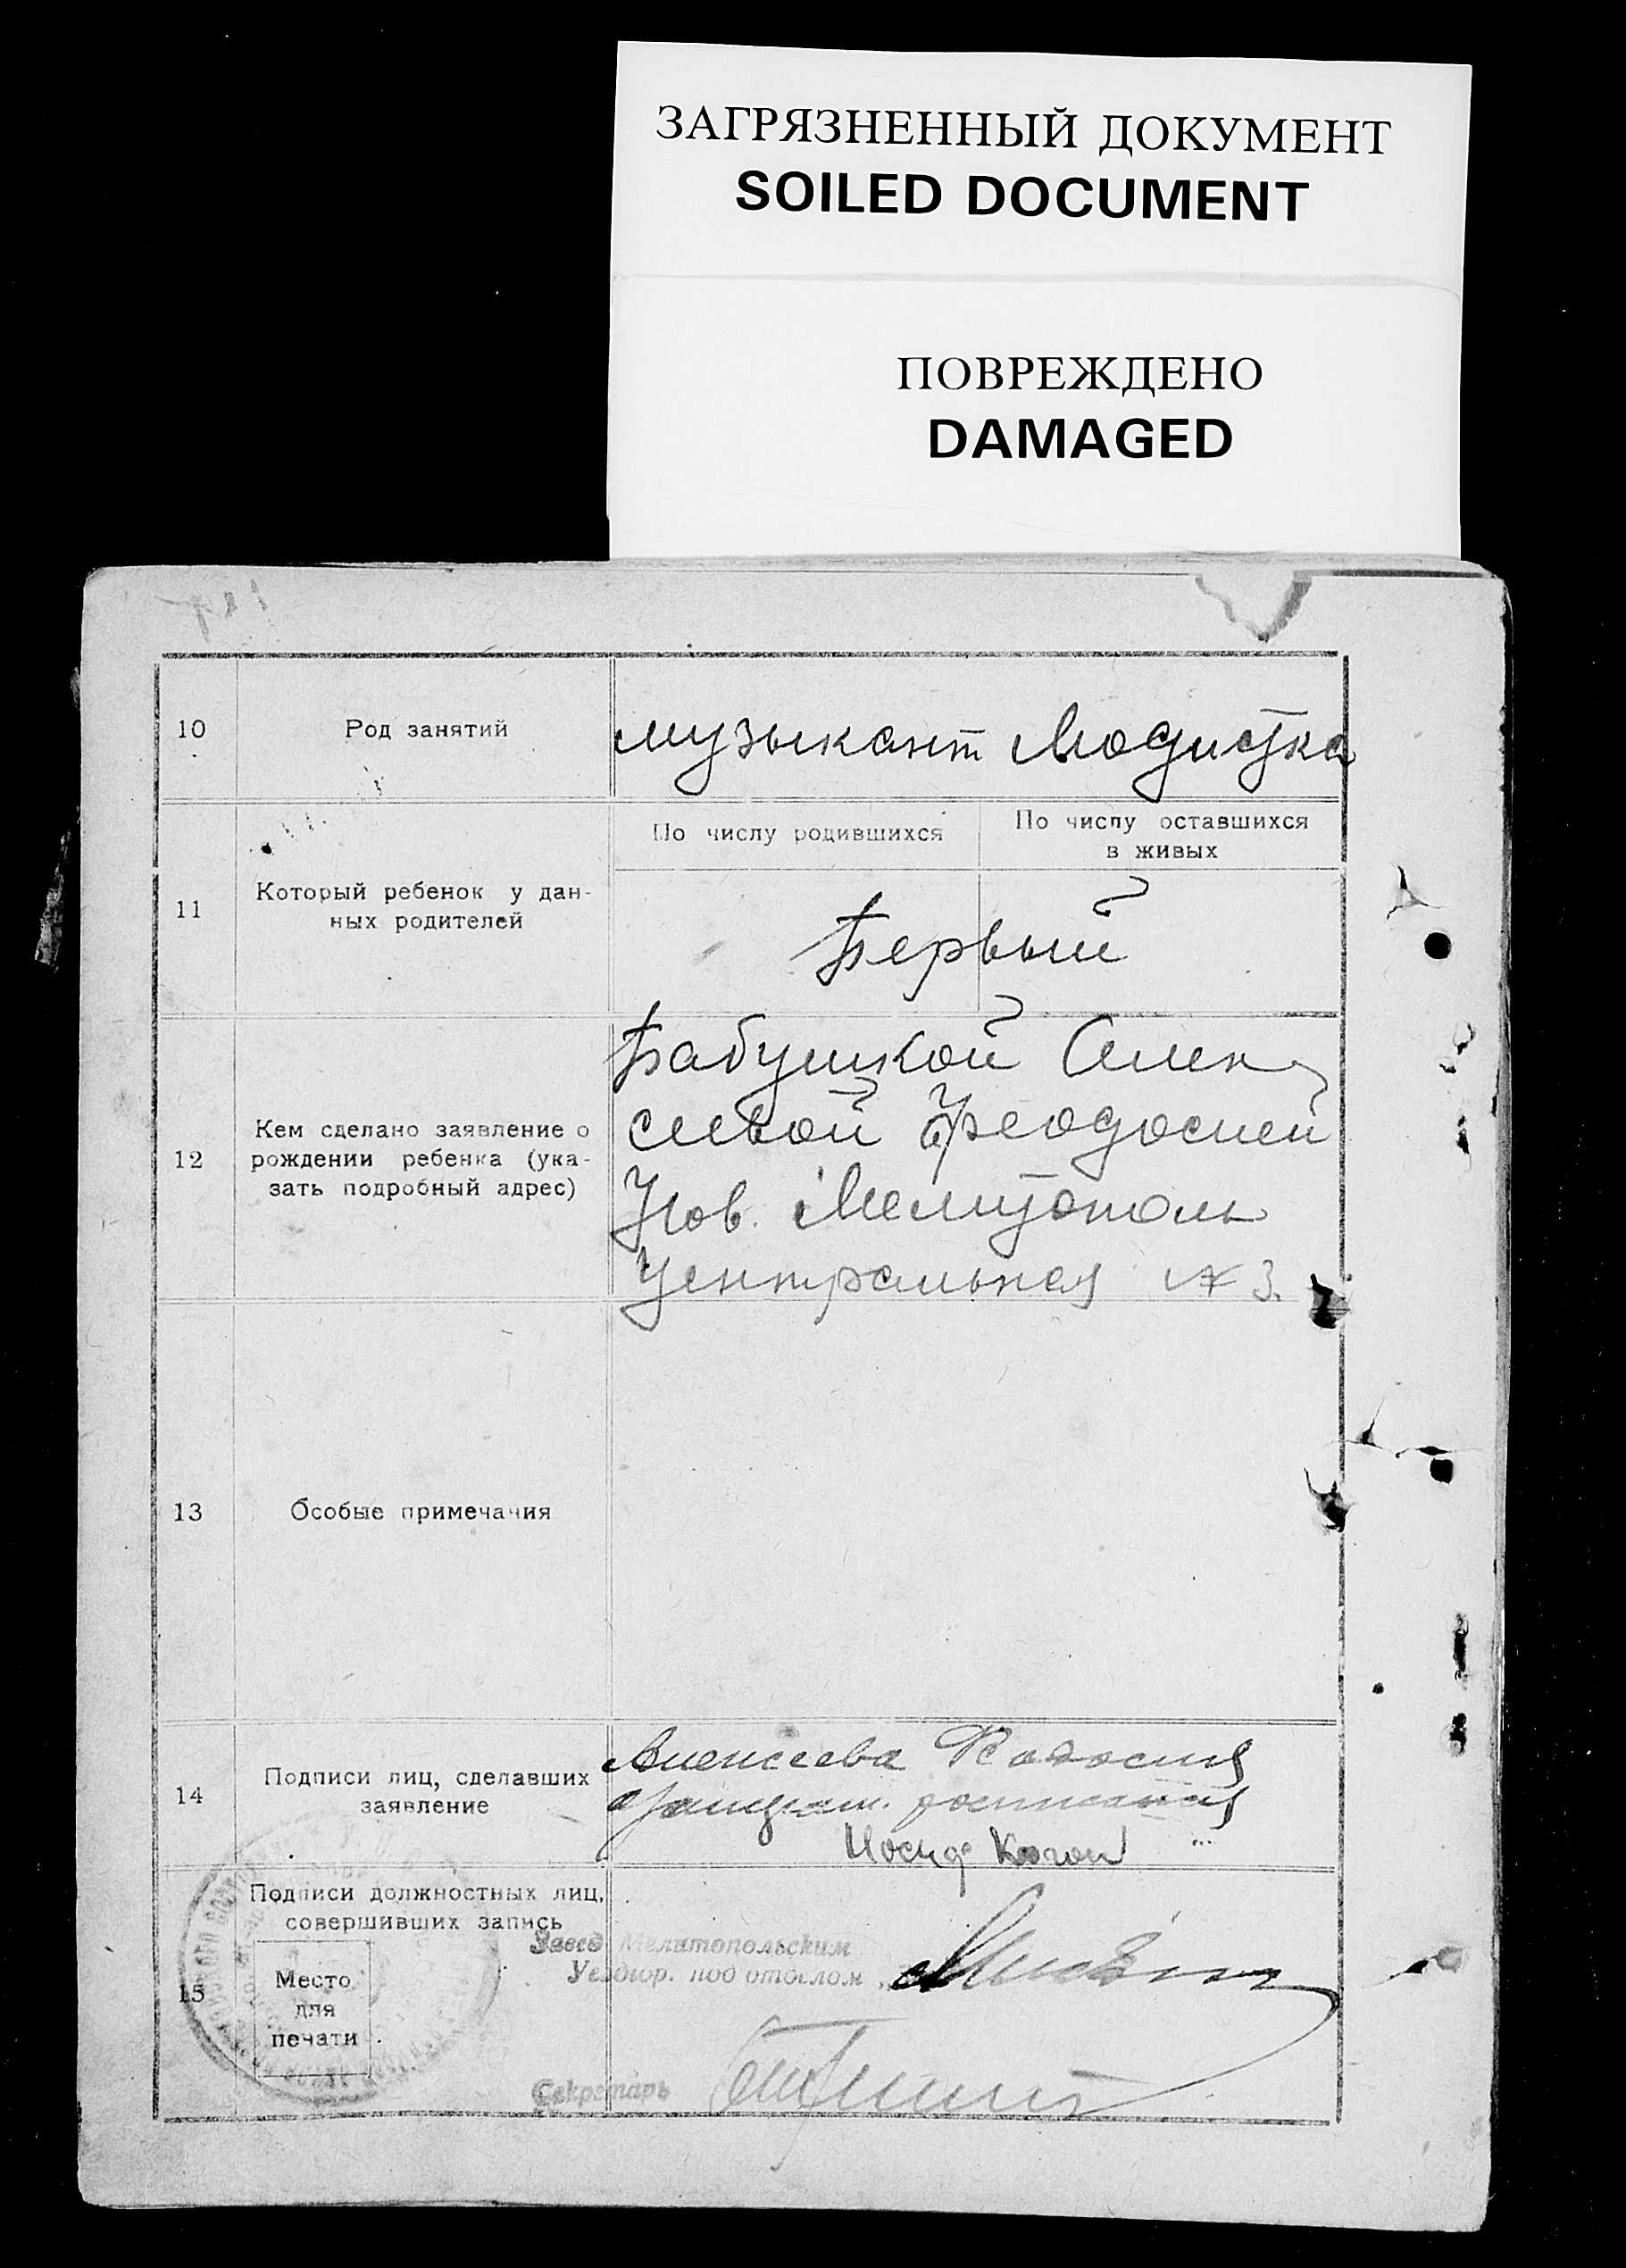 ЗАГРЯЗНЕННЫЙ ДОКУМЕНТ
SOILED DOCUMENT
ПОВРЕЖДЕНО
DAMAGED
10
Род занятий
музыкант Модистка
11
Который ребенок у дан-
ных родителей
По числу родившихся
По числу оставшихся
в живых
Первый
12
Кем сделано заявление о
рождении ребенка (ука-
зать подробный адрес)
Бабушкой Алек
сеевой Феодосией
Нов. Мелитополь
Центральная № 3.
13
Особые примечания
14
Подписи лиц, сделавших
заявление
Алексеева
Иосиф Коган
15
Подписи должностных лиц,
совершивших запись
Место
для
печати
Завед Мелитопольским
Уездгор. под отделом
Секретарь